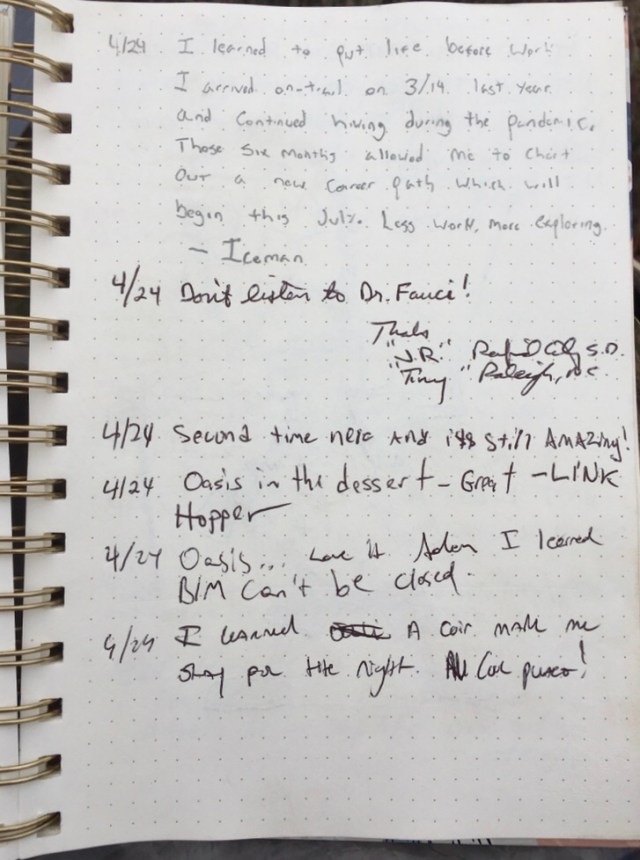 4/24 I learned to put life before work
I arrived on-trail on 3/14 last year
and continued hiking during the pandemic.
Those six months allowed me to chart
out a new career path which will
begin this July. Less work, more exploring.
— Iceman
4/24 Don't listen to Dr. Fauci!
Thanks
"J.R." Rapid City S.D.
"Tiny" Raleigh, N.C.
4/24 Second time here and it's still AMAzing!
4/24 Oasis in the dessert - Great - LINK
Hopper
4/24 Oasis... Love it. I learned
BLM Can't be closed.
4/24 I learned A coin make me
stay for the night. All